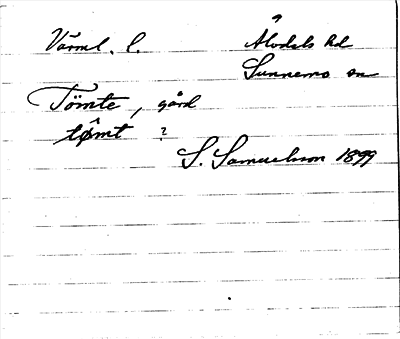 Värml. l. Älvdals hd
Sunnemo sn
Tömte, gård
tömt ?
S. Samuelsson 1899